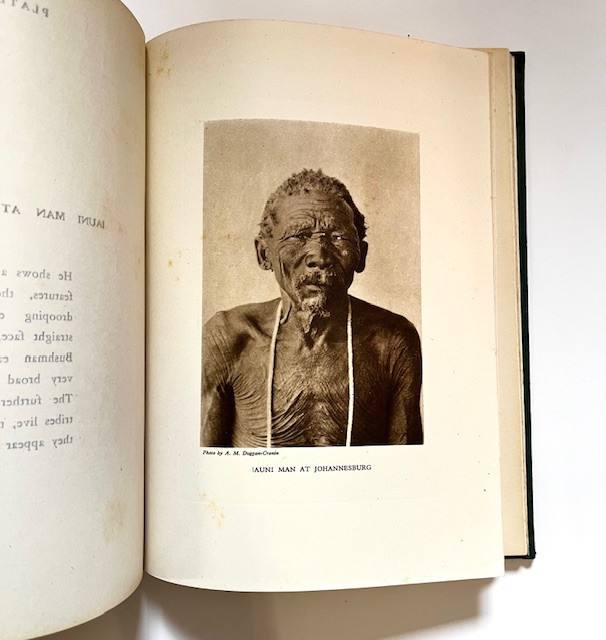 PLATE
|AUNI MAN AT
He shows a
features, the
drooping
straight face,
Bushman
very broad
The further
tribes live,
they appear
Photo by A. M. Duggan-Cronin
|AUNI MAN AT JOHANNESBURG